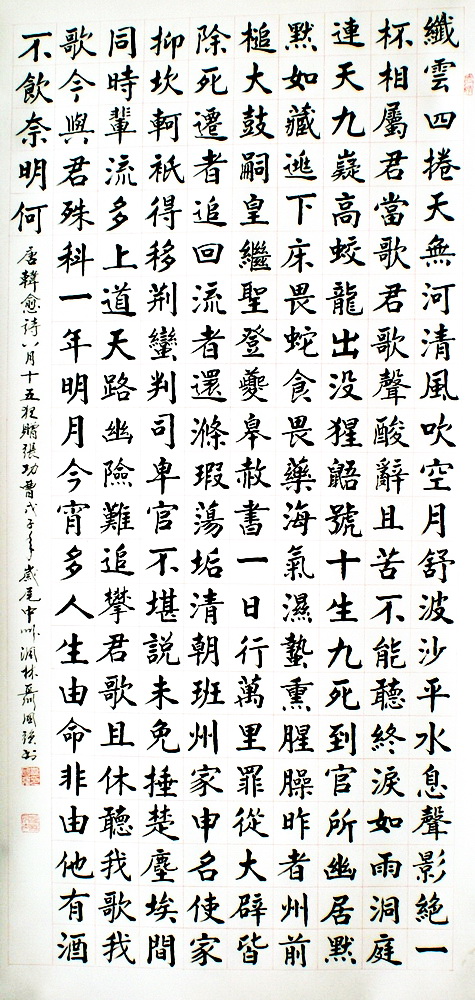 纖雲四捲天無河清風吹空月舒波沙平水息聲影絕一
杯相屬君當歌君歌聲酸辭且苦不能聽終淚如雨洞庭
連天九嶷高蛟龍出没猩鼯號十生九死到官所幽居默
默如藏逃下床畏蛇食畏藥海氣濕蟄熏腥臊昨者州前
槌大鼓嗣皇繼聖登夔皋赦書一日行萬里罪從大辟皆
除死遷者追回流者還滌瑕蕩垢清朝班州家申名使家
抑坎軻祇得移荆蠻判司卑官不堪説未免捶楚塵埃間
同時輩流多上道天路幽險難追攀君歌且休聽我歌我
歌今與君殊科一年明月今宵多人生由命非由他有酒
不飲奈明何
唐韓愈詩八月十五夜贈張功曹戊子年歲尾中州林聶國强書